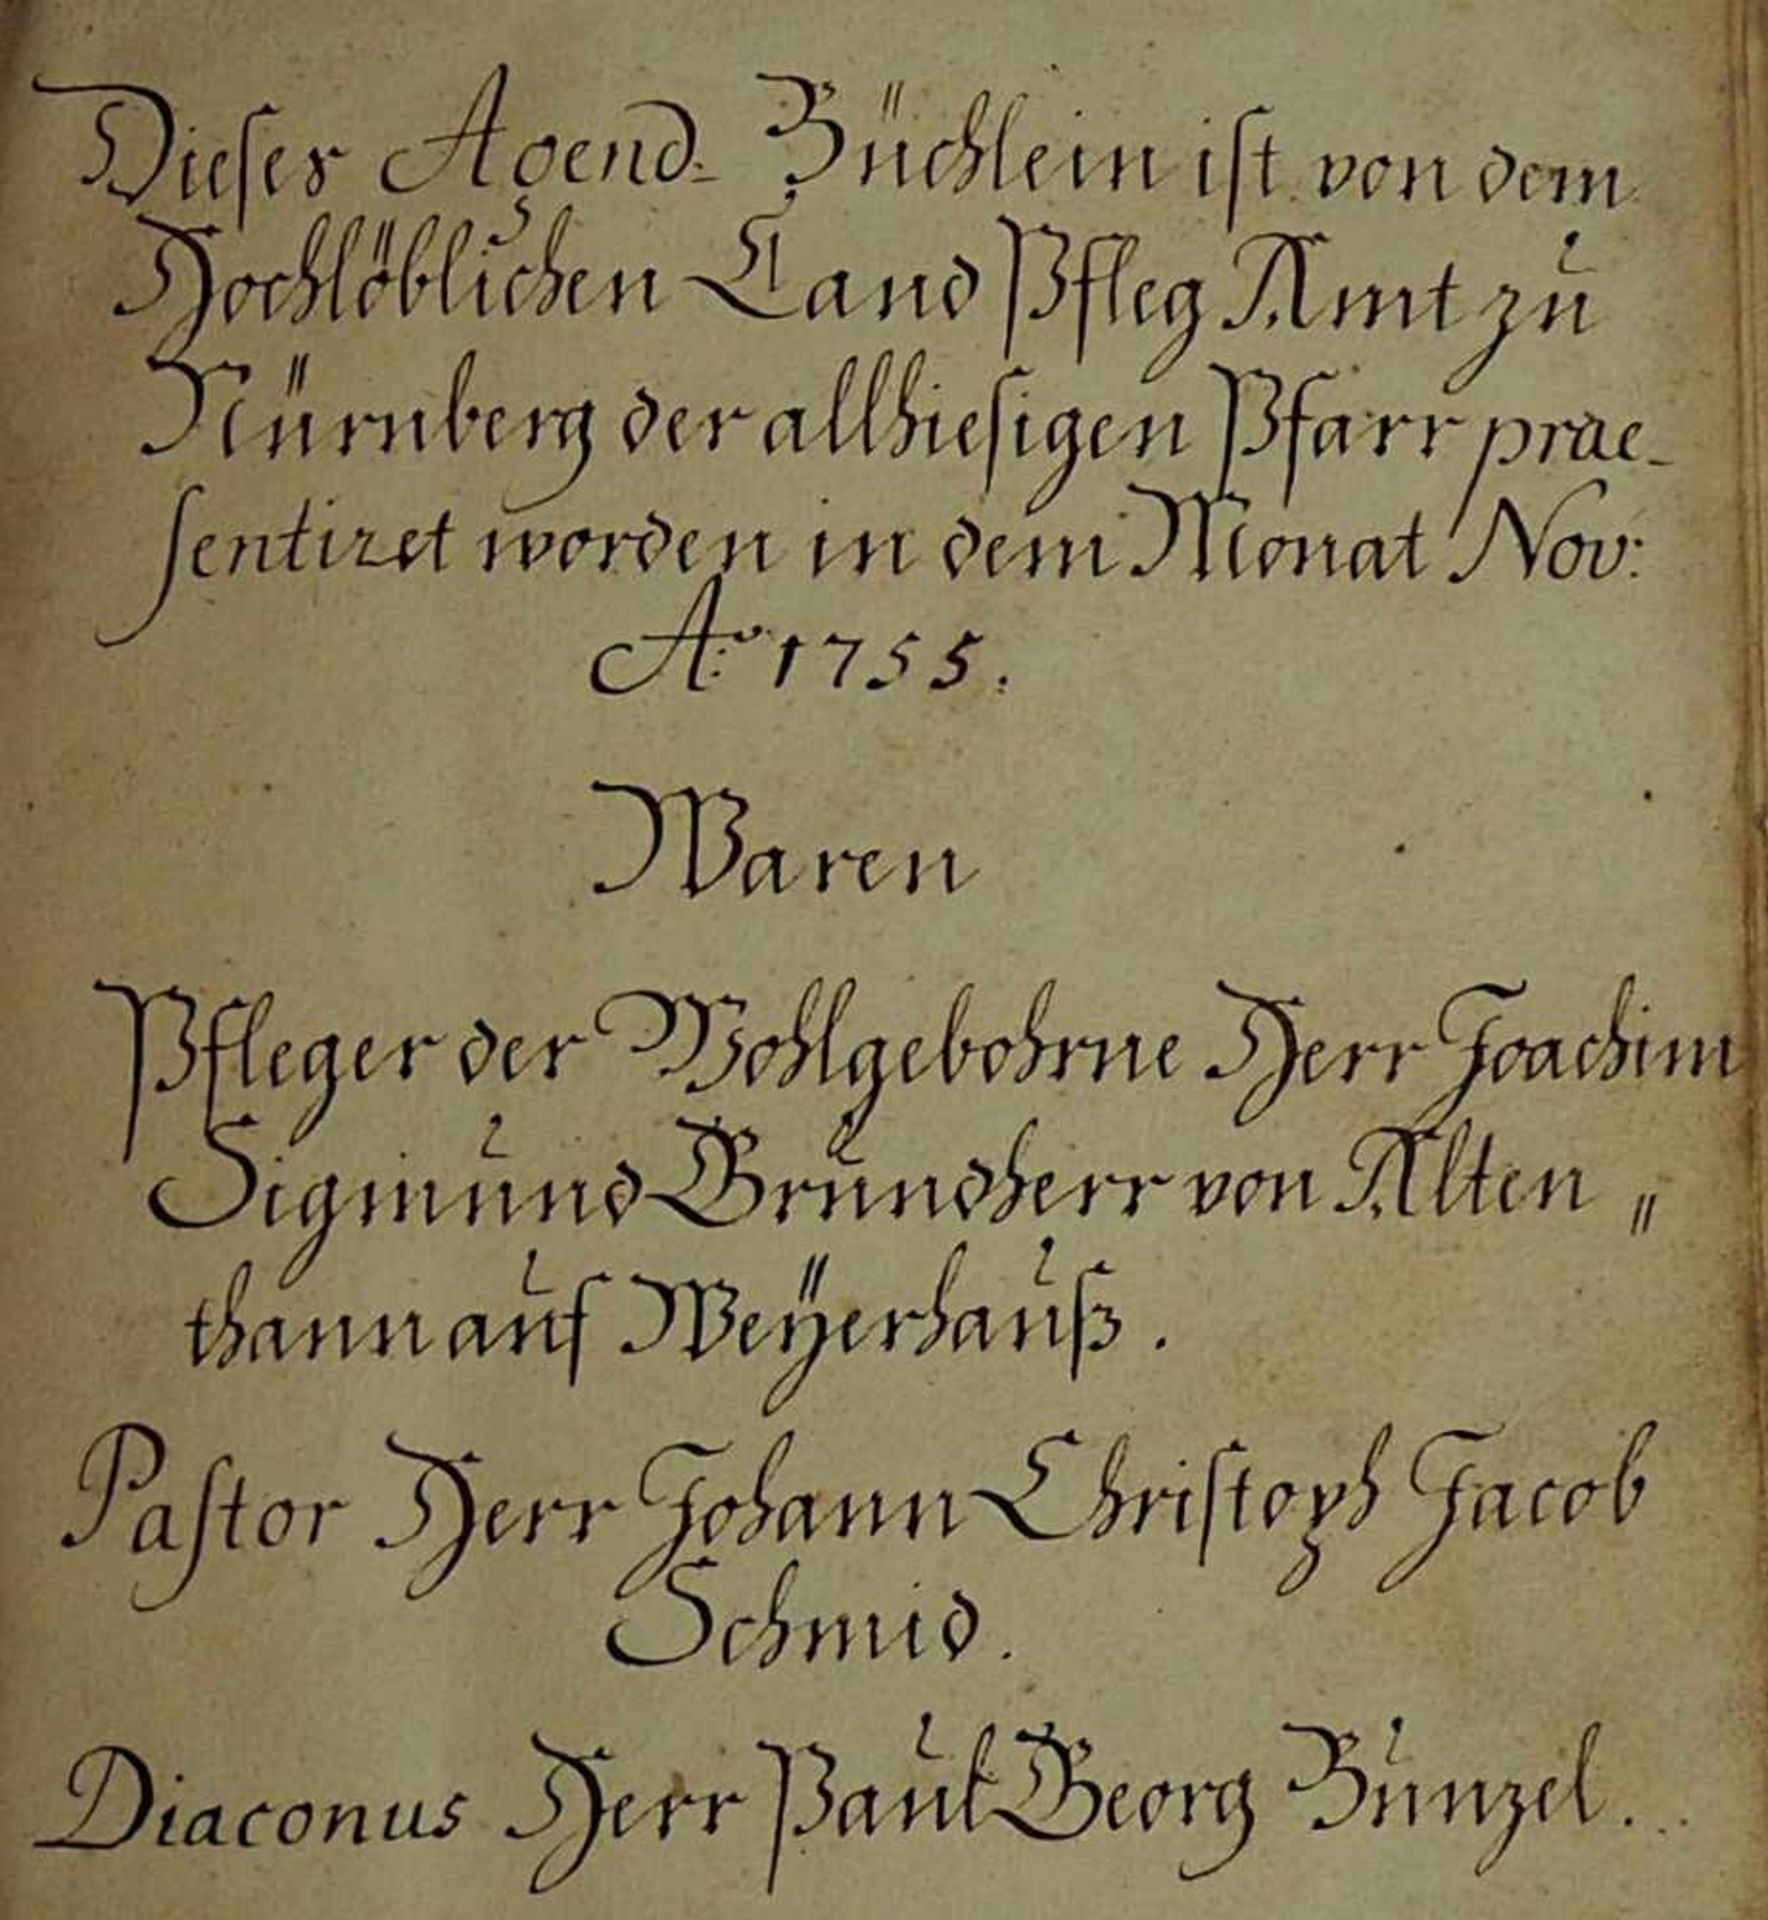 Dieses Agend= Büchlein ist von dem
Hochlöblichen Land Pfleg Amt zu
Nürnberg der allhiesigen Pfarr prae-
sentiret worden in dem Monat Nov:
Aº: 1755.
Waren
Pfleger der Wohlgebohrne Herr Joachim
Sigmund Grundherr von Alten„
thann auf Weÿerhauß.
Pastor Herr Johann Christoph Jacob
Schmid.
Diaconus Herr Paul Georg Bunzel.